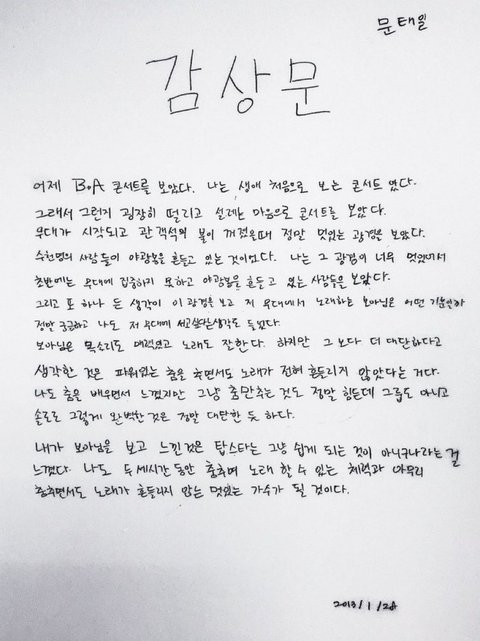 문태일
감상문
어제 BoA 콘서트를 보았다. 나는 생애 처음으로 보는 콘서트 였다.
그래서 그런지 굉장히 떨리고 설레는 마음으로 콘서트를 보았다.
무대가 시작되고 관객석의 불이 꺼졌을때 정말 멋있는 광경을 보았다.
수천명의 사람들이 야광봉을 흔들고 있는 것이었다. 나는 그 광경이 너무 멋있어서
초반에는 무대에 집중하지 못하고 야광봉을 흔들고 있는 사람들을 보았다.
그리고 또 하나 든 생각이 이 광경을 보고 저 무대에서 노래하는 보아님은 어떤 기분일까
정말 궁금하고 나도 저 무대에 서고싶다는생각도 들었다.
보아님은 목소리도 매력있고 노래도 잘한다. 하지만 그 보다 더 대단하다고
생각한 것은 파워있는 춤을 추면서도 노래가 전혀 흔들리지 않았다는 거다.
나도 춤을 배우면서 느꼈지만 그냥 춤만추는 것도 정말 힘든데 그룹도 아니고
솔로로 그렇게 완벽한 것은 정말 대단한 듯 하다.
내가 보아님을 보고 느낀것은 탑스타는 그냥 쉽게 되는 것이 아니구나라는 걸
느꼈다. 나도 두세시간 동안 춤추며 노래 할 수 있는 체력과 아무리
춤추면서도 노래가 흔들리지 않는 멋있는 가수가 될 것이다.
2013/1/28